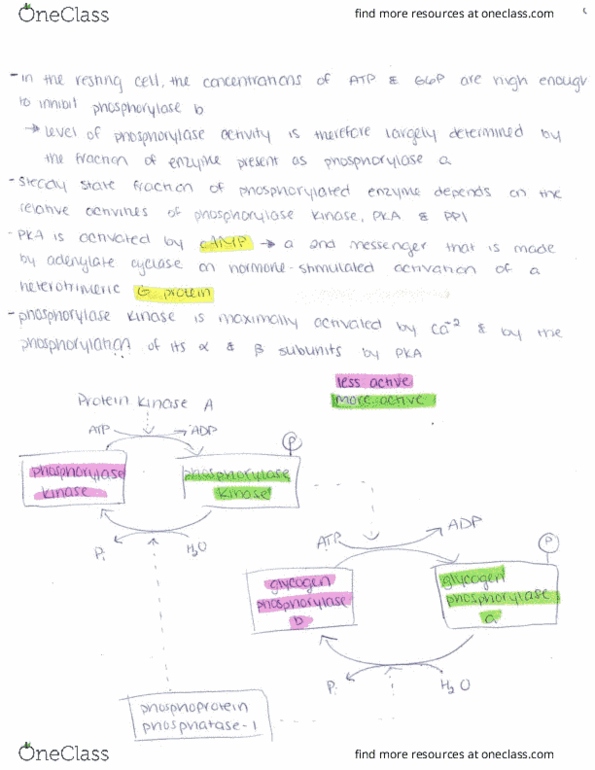 OneClass
find more resources at oneclass.com
- in the resting cell, the concentrations of ATP & G6P are high enough
to inhibit phosphorylase b
→ level of phosphorylase activity is therefore largely determined by
the fraction of enzyme present as phosphorylase a
- steady state fraction of phosphorylated enzyme depends on the
relative activities of phosphorylase kinase, PKA & PP1
- PKA is activated by cAMP → a 2nd messenger that is made
by adenylate cyclase on hormone-stimulated activation of a
heterotrimeric G protein
- phosphorylase kinase is maximally activated by Ca⁺² & by the
phosphorylation of its α & β subunits by PKA
less active
more active
Protein Kinase A
ATP
ADP
P
phosphorylase
kinase
phosphorylase
kinase
Pi
H2O
ATP
ADP
P
glycogen
phosphorylase
b
glycogen
phosphorylase
a
Pi
H2O
phosphoprotein
phosphatase-1
OneClass
find more resources at oneclass.com